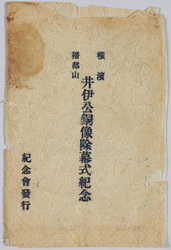 横濱
掃部山
井伊公銅像除幕式紀念
紀念會發行